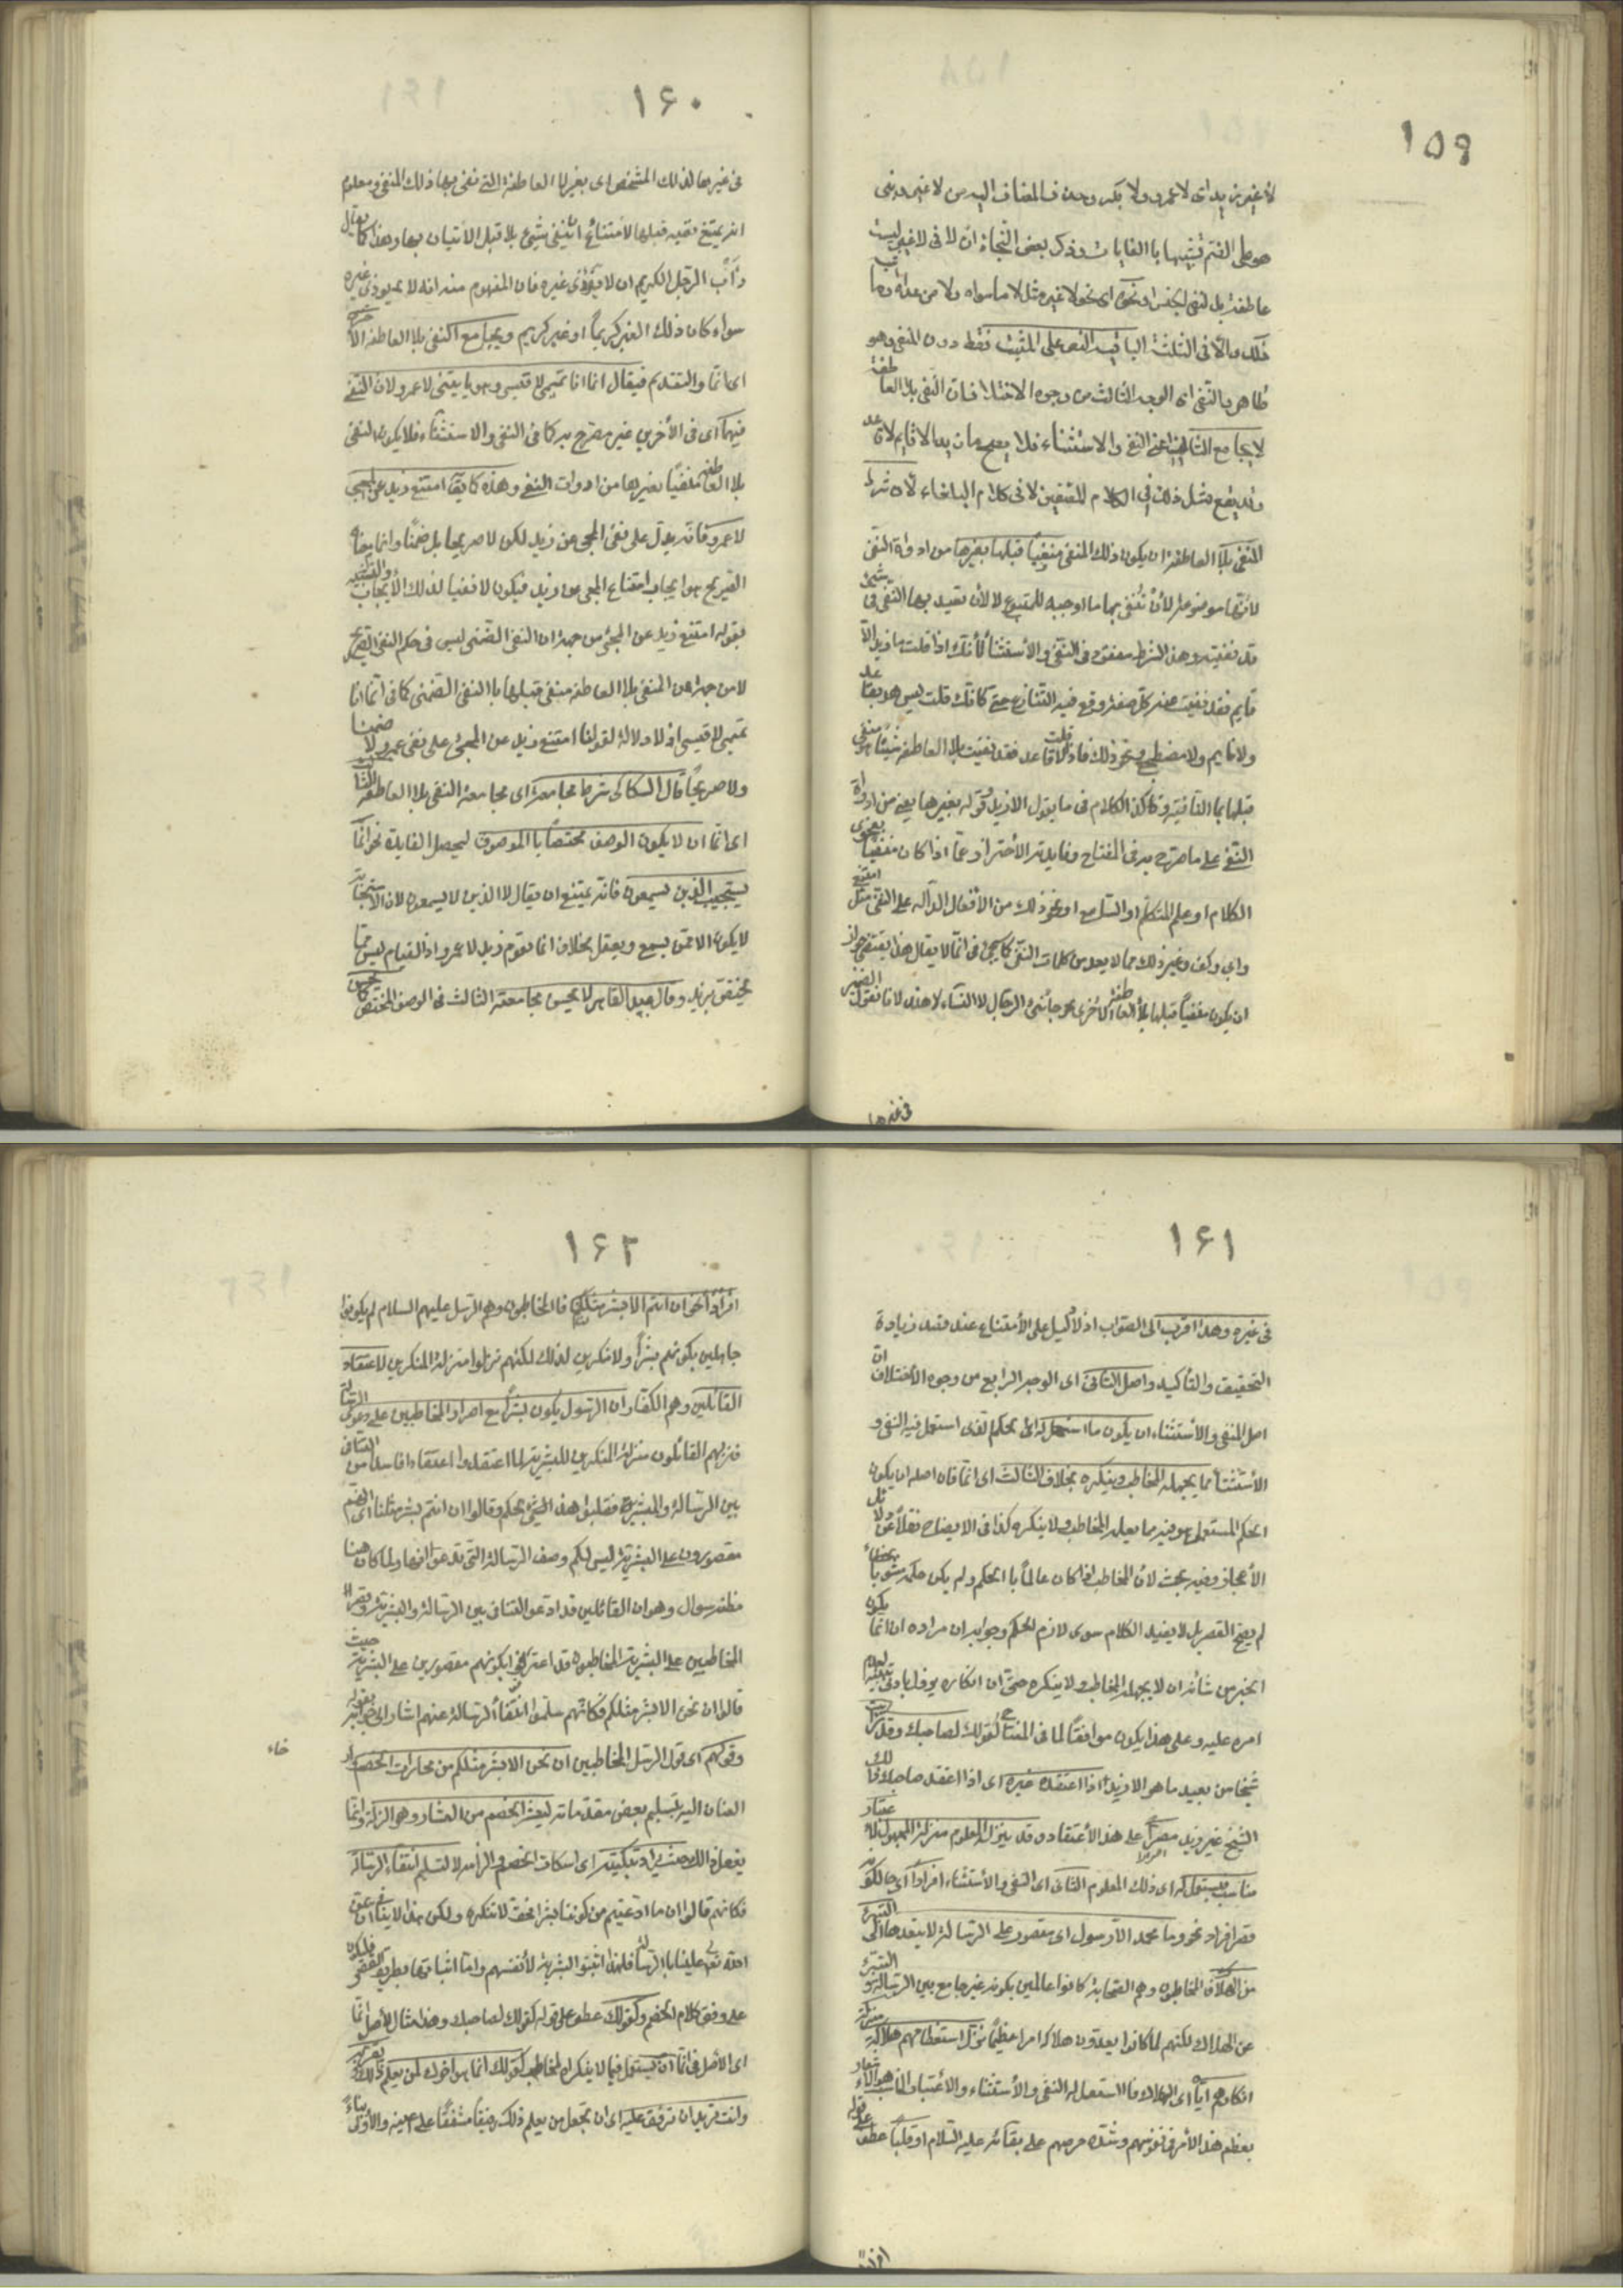 ١٥٩
لا غير زيد اى لا عمرو ولا بكر وحذف المضاف اليه من لا غير وبنى
هو على الضم تشبيها باالغايات وذكر بعض النحاة ان لا فى لا غير ليست
عاطفة بل لنفى الجنس او نحوه اى نحو لا غير مثل لا ما سواه ولا من عداه وما
والأصل فى الثلثة الباقية النص على المثبت فقط دون المنفى وهو
ظاهر والنفى اى الوجه الثالث من وجوه الاختلاف ان النفى بلا العاطفة
لا يجامع الثانى اعنى النفى والاستثناء فلا يصح ما زيد الا قايم لا قاعد
وقد يقع مثل ذلك فى الكلام المصنفين لا فى كلام البلغاء لأن شرط
المنفى بلا العاطفة ان يكون ذلك المنفى منفيا قبلها بغيرها من ادواة النفى
لأنها موضوعة لأن تنفى بها ما اوجبته للمتبوع لا لأن تعيد بها النفى فى شئ
قد نفيته وهذا الشرط مفقود فى النفى والأستثناء لأنك اذا قلت ما زيد الا
قايم فقد نفيت عنه كل صفة وقع فيه التنازع حتى كانك قلت ليس هو بقاعد
ولا نايم ولا مضطجع ونحو ذلك فاذا قلت لا قاعد فقد نفيت بلا العاطفة شيئا هو منفى
قبلها بما النافية وكذا الكلام فى ما يقول الا زيد وقوله بغيرها يعنى من ادواة
النفى على ما صرح به فى المفتاح وفايدته الأحتراز عما اذا كان منفيا بفحوى
الكلام او علم المتكلم او السامع او نحو ذلك من الأفعال الدالة على النفى مثل امتنع
وابى وكف وغير ذلك مما لا يعد من كلمات النفى كما سيجئ فى انما لا يقال هذا يقتضى جواز
ان يكون منفيا قبلها بلا العاطفة الأخرى نحو جائنى الرجال لا النساء لا هند لانا نقول الضمير
فى غيرها
١٦٠
فى غيرها لذلك المشخص اى بغير لا العاطفة التى نفى بها ذلك المنفى ومعلوم
انه يمتنع نفيه قبلها لأمتناع ان ينفى شئ بلا قبل الأتيان بها وهذا كما يقال
دأب الرجل الكريم ان لا يؤذى غيره فان المفهوم منه انه لا يؤذى غيره
سواء كان ذلك الغير كريما او غير كريم ويجامع النفى بلا العاطفة الأخيرين
اى انما والتقديم فيقال انما انا تميمى لا قيسى وهو يأتينى لا عمرو لان النفى
فيهما اى فى الأخيرين غير مصرح به كما فى النفى والاستثناء فلا يكون المنفى
بلا العاطفة منفيا بغيرها من ادوات النفى وهذا كما يقال امتنع زيد عن المجئ
لا عمرو فانه يدل على نفى المجئ عن زيد لكن لا صريحا بل ضمنا وانما معناه
الصريح هو ايجاب امتناع المجئ عن زيد فيكون لا نفيا لذلك الأيجاب والتشبيه
بقوله امتنع زيد عن المجئ من جهة ان النفى الضمنى ليس فى حكم النفى الصريح
لا من جهة ان المنفى بلا العاطفة منفى قبلها باالنفى الضمنى كما فى انما انا
تميمى لا قيسى اذ لا دلالة لقولنا امتنع زيد عن المجئ على نفى عمرو لا ضمنا
ولا صريحا قال السكاكى شرط مجامعته اى مجامعة النفى بلا العاطفة الثالث
اى انما ان لا يكون الوصف مختصا باالموصوف ليحصل الفايدة نحو انما
يستجيب الذين يسمعون فانه يمتنع ان يقال لا الذين لا يسمعون لان الأستجابة
لا يكون الا ممن يسمع ويعقل بخلاف انما يقوم زيد لا عمرو اذ القيام ليس مما
يختص بزيد وقال عبد القاهر لا يحسن مجامعته الثالث فى الوصف المختص كما يحسن
١٦١
فى غيره وهذا اقرب الى الصواب اذ لا دليل على الأمتناع عند قصد زيادة
التحقيق والتأكيد واصل الثانى اى الوجه الرابع من وجوه الأختلاف ان
اصل النفى والأستثناء ان يكون ما استعمل له اى الحكم الذى استعمل فيه النفى و
الأستثناء مما يجهله المخاطب وينكره بخلاف الثالث اى انما فان اصله ان يكون
الحكم المستعمل هو فيه مما يعلمه المخاطب ولا ينكره كذا فى الايضاح نقلا عن دلائل
الأعجاز وفيه بحث لأن المخاطب اذا كان عالما باالحكم ولم يكن حكمه مشوبا بخطاء
لم يصح القصر بل لا يفيد الكلام سوى لازم الحكم وجوابه ان مراده ان انما يكون
لخبر من شانه ان لا يجهله المخاطب ولا ينكره حتى ان انكاره يزول بادنى تنبيه لعدم
اصراره عليه وعلى هذا يكون موافقا لما فى المفتاح كقولك لصاحبك وقد رأيت
شبحا من بعيد ما هو الا زيد اذا اعتقده غيره اى اذا اعتقد صاحبك ذلك
الشبح غير زيد مصرا على هذا الأعتقاد وقد ينزل المعلوم منزلة المجهول لأعتبار
مناسب فيستعمل له اى ذلك المعلوم الثانى اى النفى والأستثناء افرادا اى حالكونه
قصر افراد نحو وما محمد الا رسول اى مقصور على الرسالة لا يتعداها الى التبرى
من الهلاك فالمخاطبون وهم الصحابة كانوا عالمين بكونه غير جامع بين الرسالة والتبرى
عن الهلاك لكنهم لما كانوا يعدون هلاكه امرا عظيما نزل استعظامهم هلاكه منزلة
انكارهم اياه اى الهلاك فااستعمل له النفى والأستثناء والأعتبار المناسب هو الأشعار
بعظم هذا الأمر فى نفوسهم وشدة حرصهم على بقائه عليه السلام او قلبا عطف على قوله
افرادا
١٦٢
افرادا نحو ان انتم الا بشر مثلنا فالمخاطبون وهم الرسل عليهم السلام لم يكونوا
جاهلين بكونهم بشرا ولا منكرين لذلك لكنهم نزلوا منزلة المنكرين لأعتقاد
القائلين وهم الكفار ان الرسول لا يكون بشرا مع اصرار المخاطبين على دعوى الرسالة
فنزلهم القائلون منزلة المنكرين للبشرية لما اعتقدوا اعتقادا فاسدا من التنافى
بين الرسالة والبشرية فقلبوا هذا الحكم وقالوا ان انتم الا بشر مثلنا اى انتم
مقصورون على البشرية ليس لكم وصف الرسالة التى تدعونها ولما كان هنا
مظنة سوال وهو ان القائلين قد ادعوا التنافى بين الرسالة والبشرية وقصروا
المخاطبين على البشرية والمخاطبون قد اعترفوا بكونهم مقصورين على البشرية حيث
قالوا ان نحن الا بشر مثلكم فكانهم سلموا انتفاء الرسالة عنهم اشار الى جوابه بقوله
وقولهم اى قول الرسل المخاطبين ان نحن الا بشر مثلكم من مجاراة الخصم وارخاء
العنان اليه بتسليم بعض مقدماته ليعثر الخصم من العثار وهو الزلة وانما
يفعل ذلك حيث يراد تبكيته اى اسكات الخصم والزامه لا لتسليم انتفاء الرسالة
فكانهم قالوا ان ما ادعيتم من كوننا بشرا فحق لا ننكره ولكن هذا لا ينافى ان يمن
الله تعالى علينا باالرسالة فلهذا اثبتوا البشرية لأنفسهم واما اثباتها بطريق القصر فليكون
على وفق كلام الخصم وكقولك عطف على قوله كقولك لصاحبك وهذا مثال لأصل انما
اى الأصل فى انما ان يستعمل فيما لا ينكره المخاطب كقولك انما هو اخوك لمن يعلم ذلك ويقر به
وانت تريد ان ترققه عليه اى ان تجعل من يعلم ذلك رقيقا مشفقا على اخيه والأولى بناء
خاء